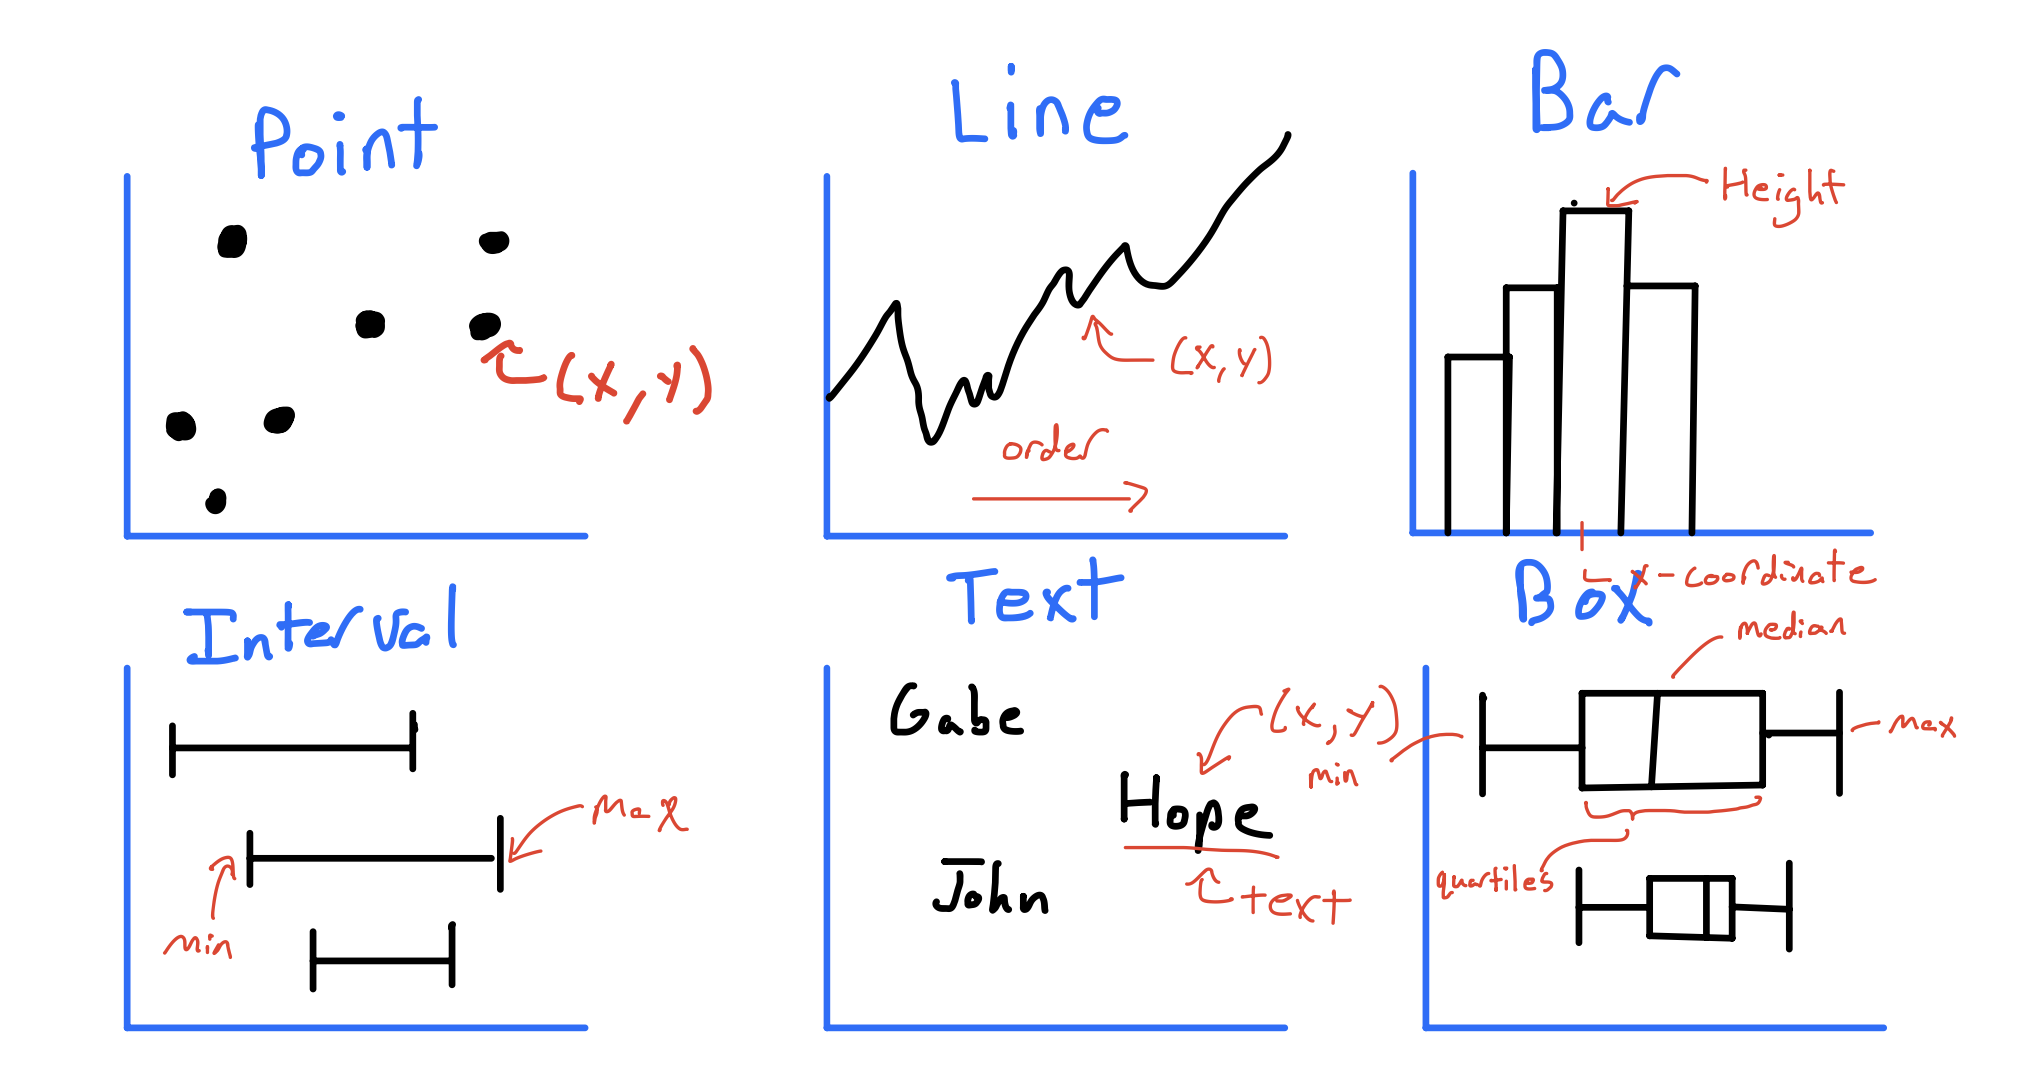 Point
(x,y)
Line
(x,y)
order
Bar
Height
x-coordinate
Interval
max
min
Text
Gabe
(x,y)
Hope
text
John
Box
median
min
max
quartiles